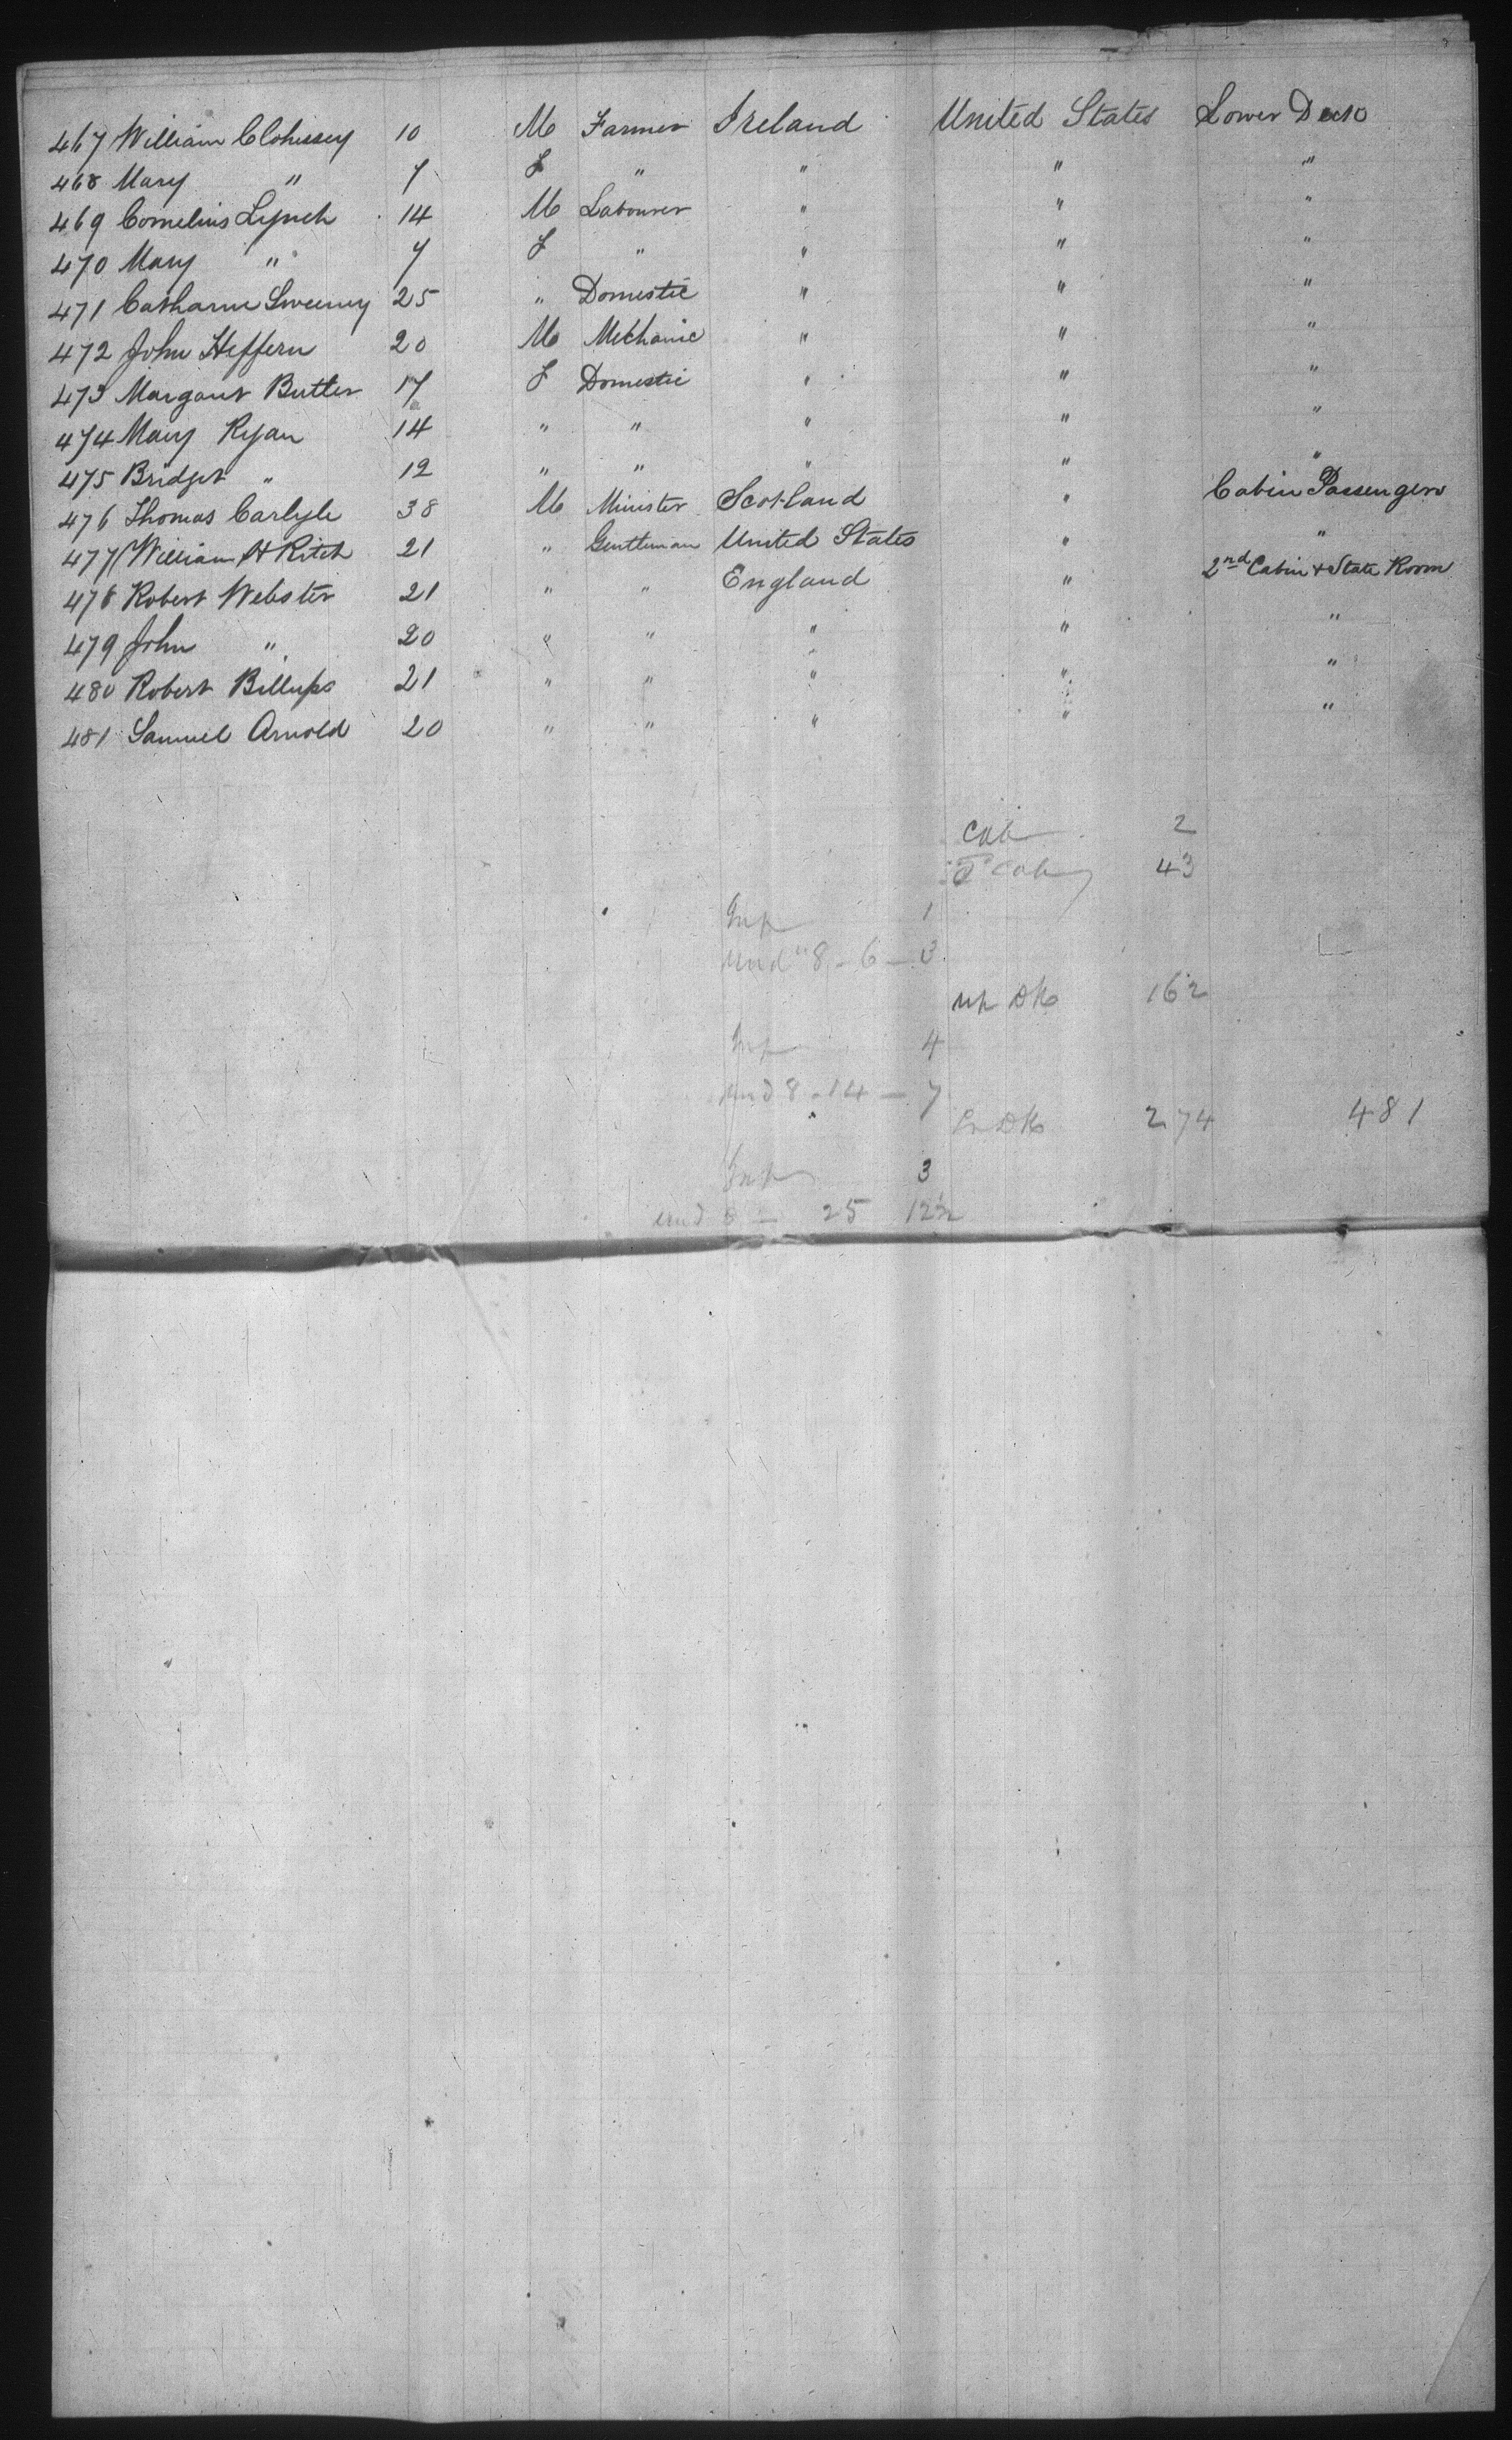 467 William Clohissey 10 M Farmer Ireland United States Lower Deck
468 Mary " 7 F " " " "
469 Cornelius Lynch 14 M Labourer " " "
470 Mary " 7 F " " " "
471 Catharine Sweeney 25 " Domestic " " "
472 John Heffern 20 M Mechanic " " "
473 Margaret Butler 17 F Domestic " " "
474 Mary Ryan 14 " " " " "
475 Bridget " 12 " " " " "
476 Thomas Carlyle 38 M Minister Scotland " Cabin Passengers
477 William H Ritch 21 " Gentleman United States " "
478 Robert Webster 21 " " England " 2nd Cabin & State Room
479 John " 20 " " " " "
480 Robert Billups 21 " " " " "
481 Samuel Arnold 20 " " " " "
Cab 2
Cab 43
Inf 1
und 8 - 6 - 3
up Dk 162
Inf 4
und 8 - 14 - 7
Dk 274 481
Inf 3
und 8 - 25